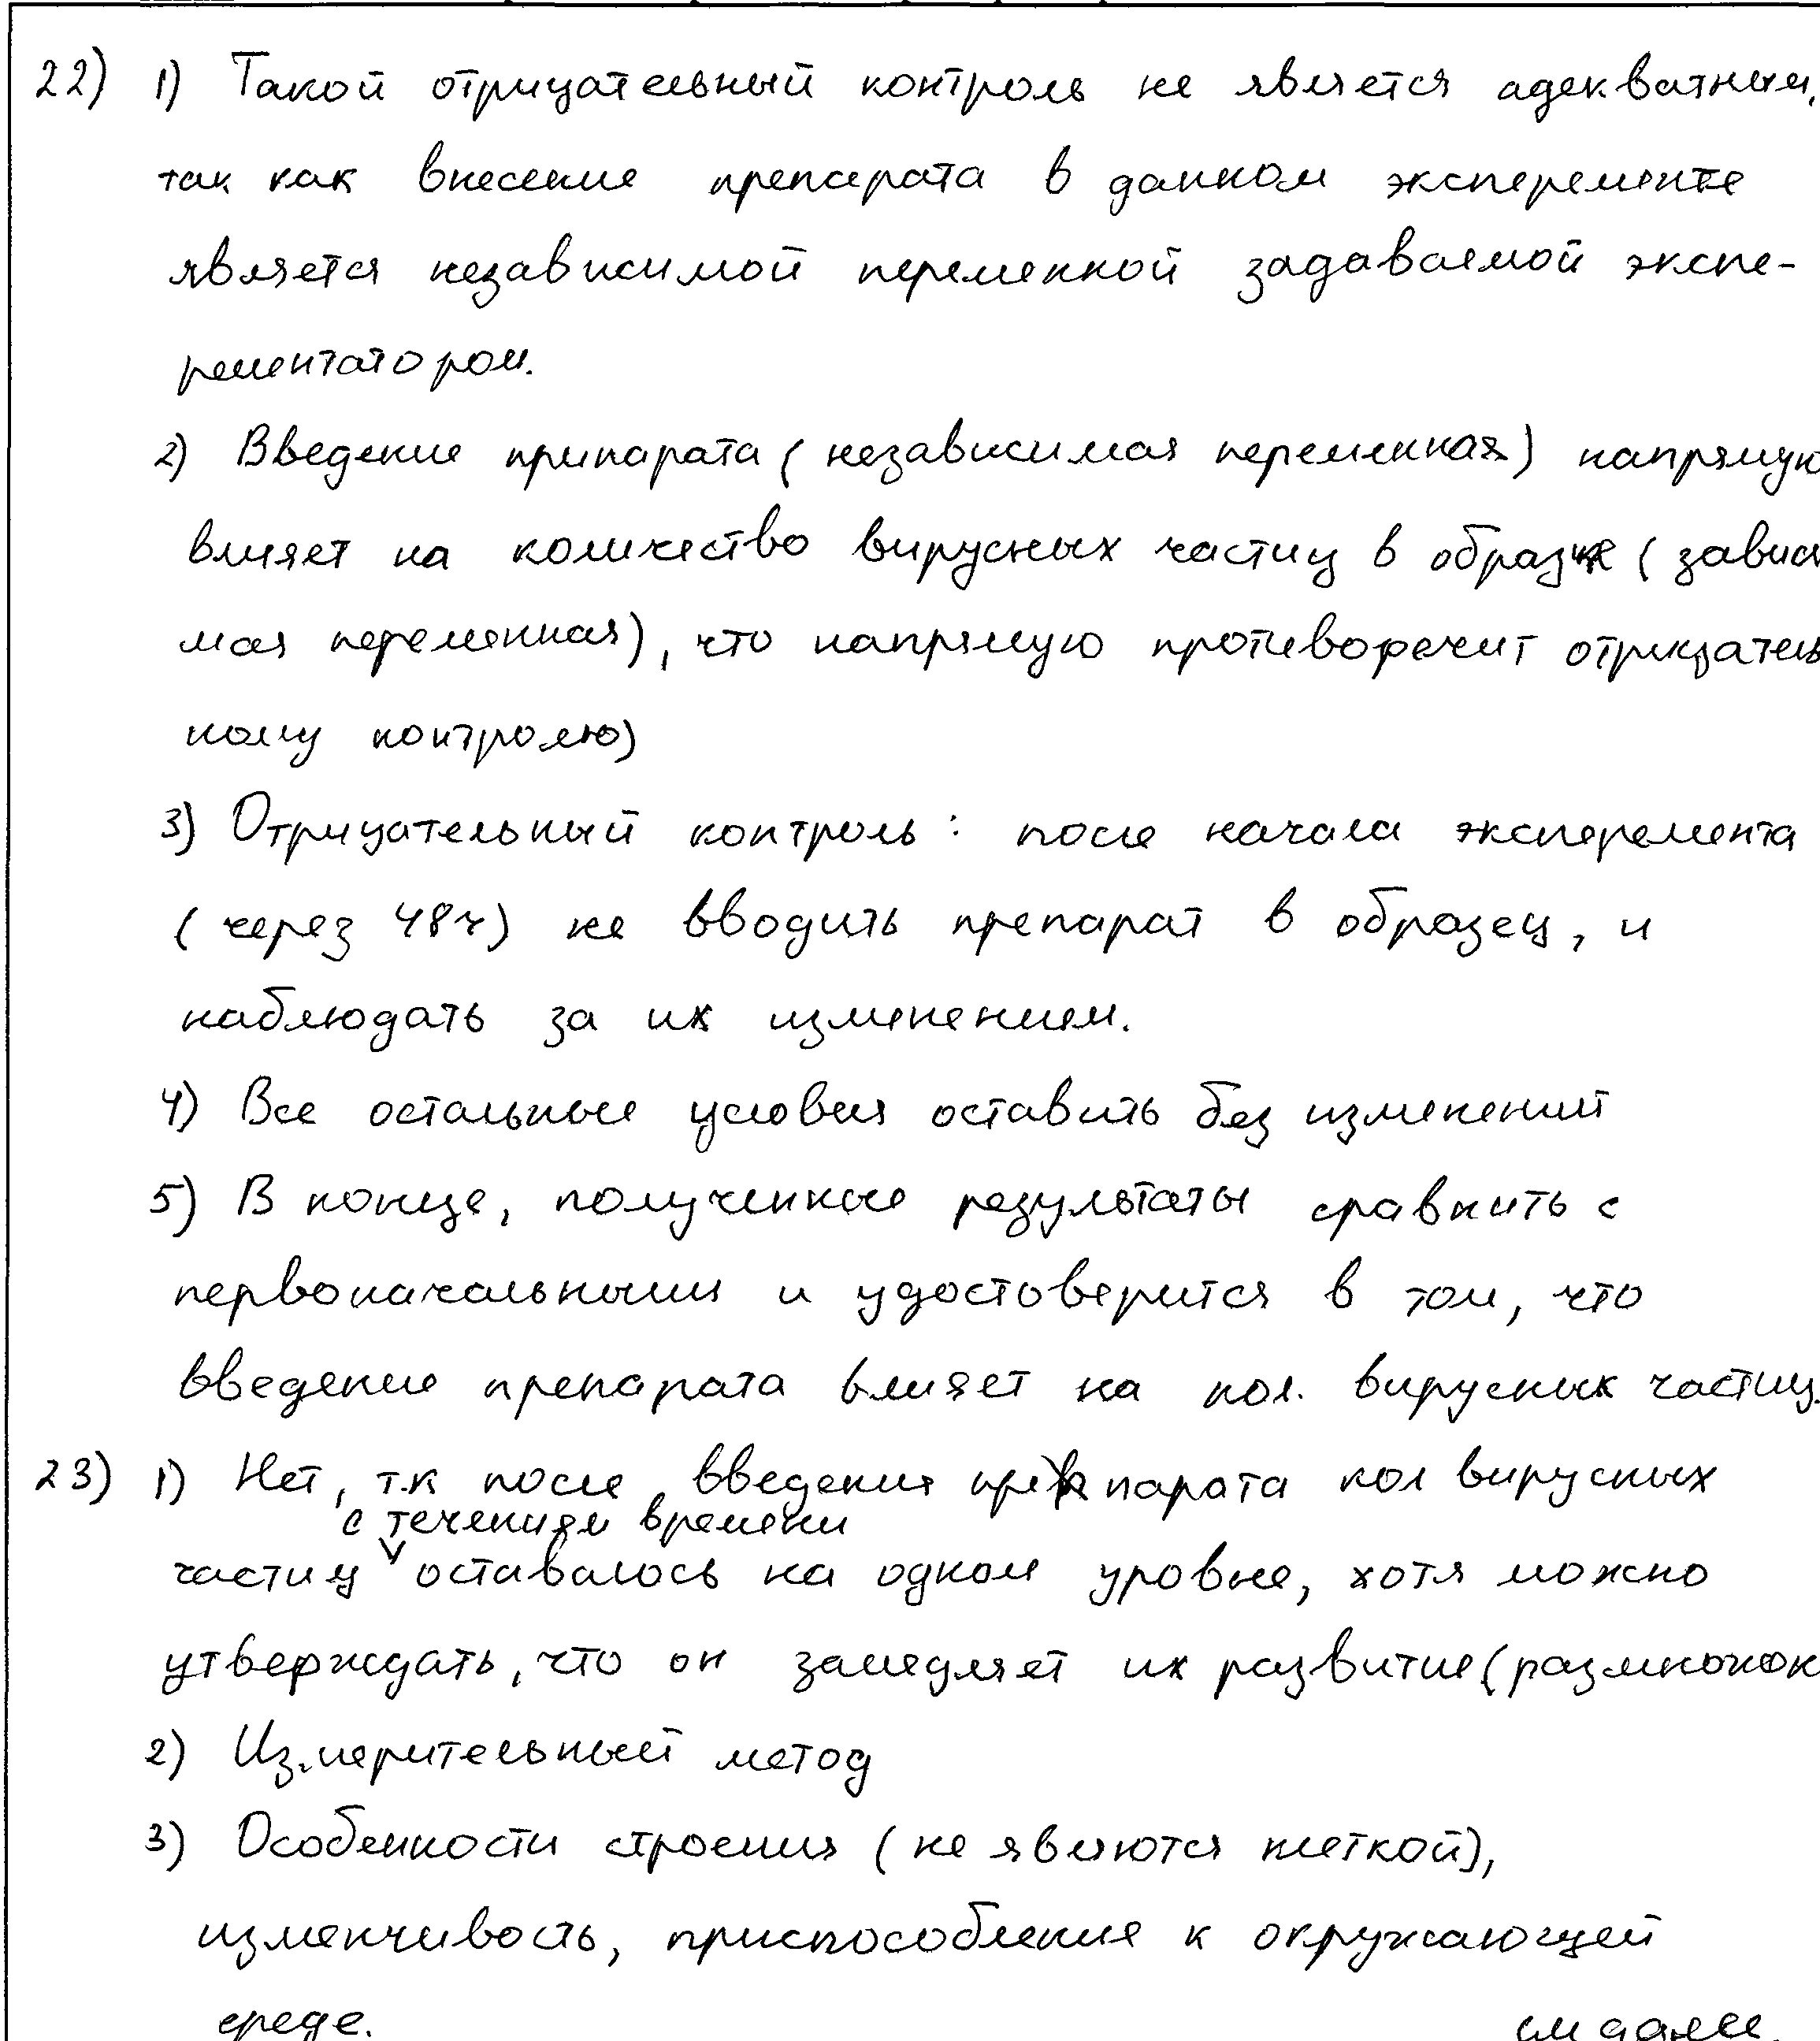 22) 1) Такой отрицательный контроль не является адекватным,
так как внесение препарата в данном эксперементе
является независимой переменной задаваемой экспе-
рементатором.
2) Введение припарата (независимая переменная) напрямую
влияет на количество вирусных частиц в образце (зависи
мая переменная), что напрямую противоречит отрицатель
ному контролю)
3) Отрицательный контроль: после начала эксперемента
(через 48ч) не вводить препарат в образец, и
наблюдать за их изменением.
4) Все остальные условия оставить без изменений
5) В конце, полученные результаты сравнить с
первоначальными и удостоверится в том, что
введение препарата влияет на кол. вирусных частиц.
23) 1) Нет, т.к после введения препарата кол вирусных
с течением времени
частиц оставалось на одном уровне, хотя можно
утверждать, что он замедляет их развитие (размножен
2) Измерительный метод
3) Особенности строения (не являются клеткой),
изменчивость, приспособление к окружающей
среде. см далее.